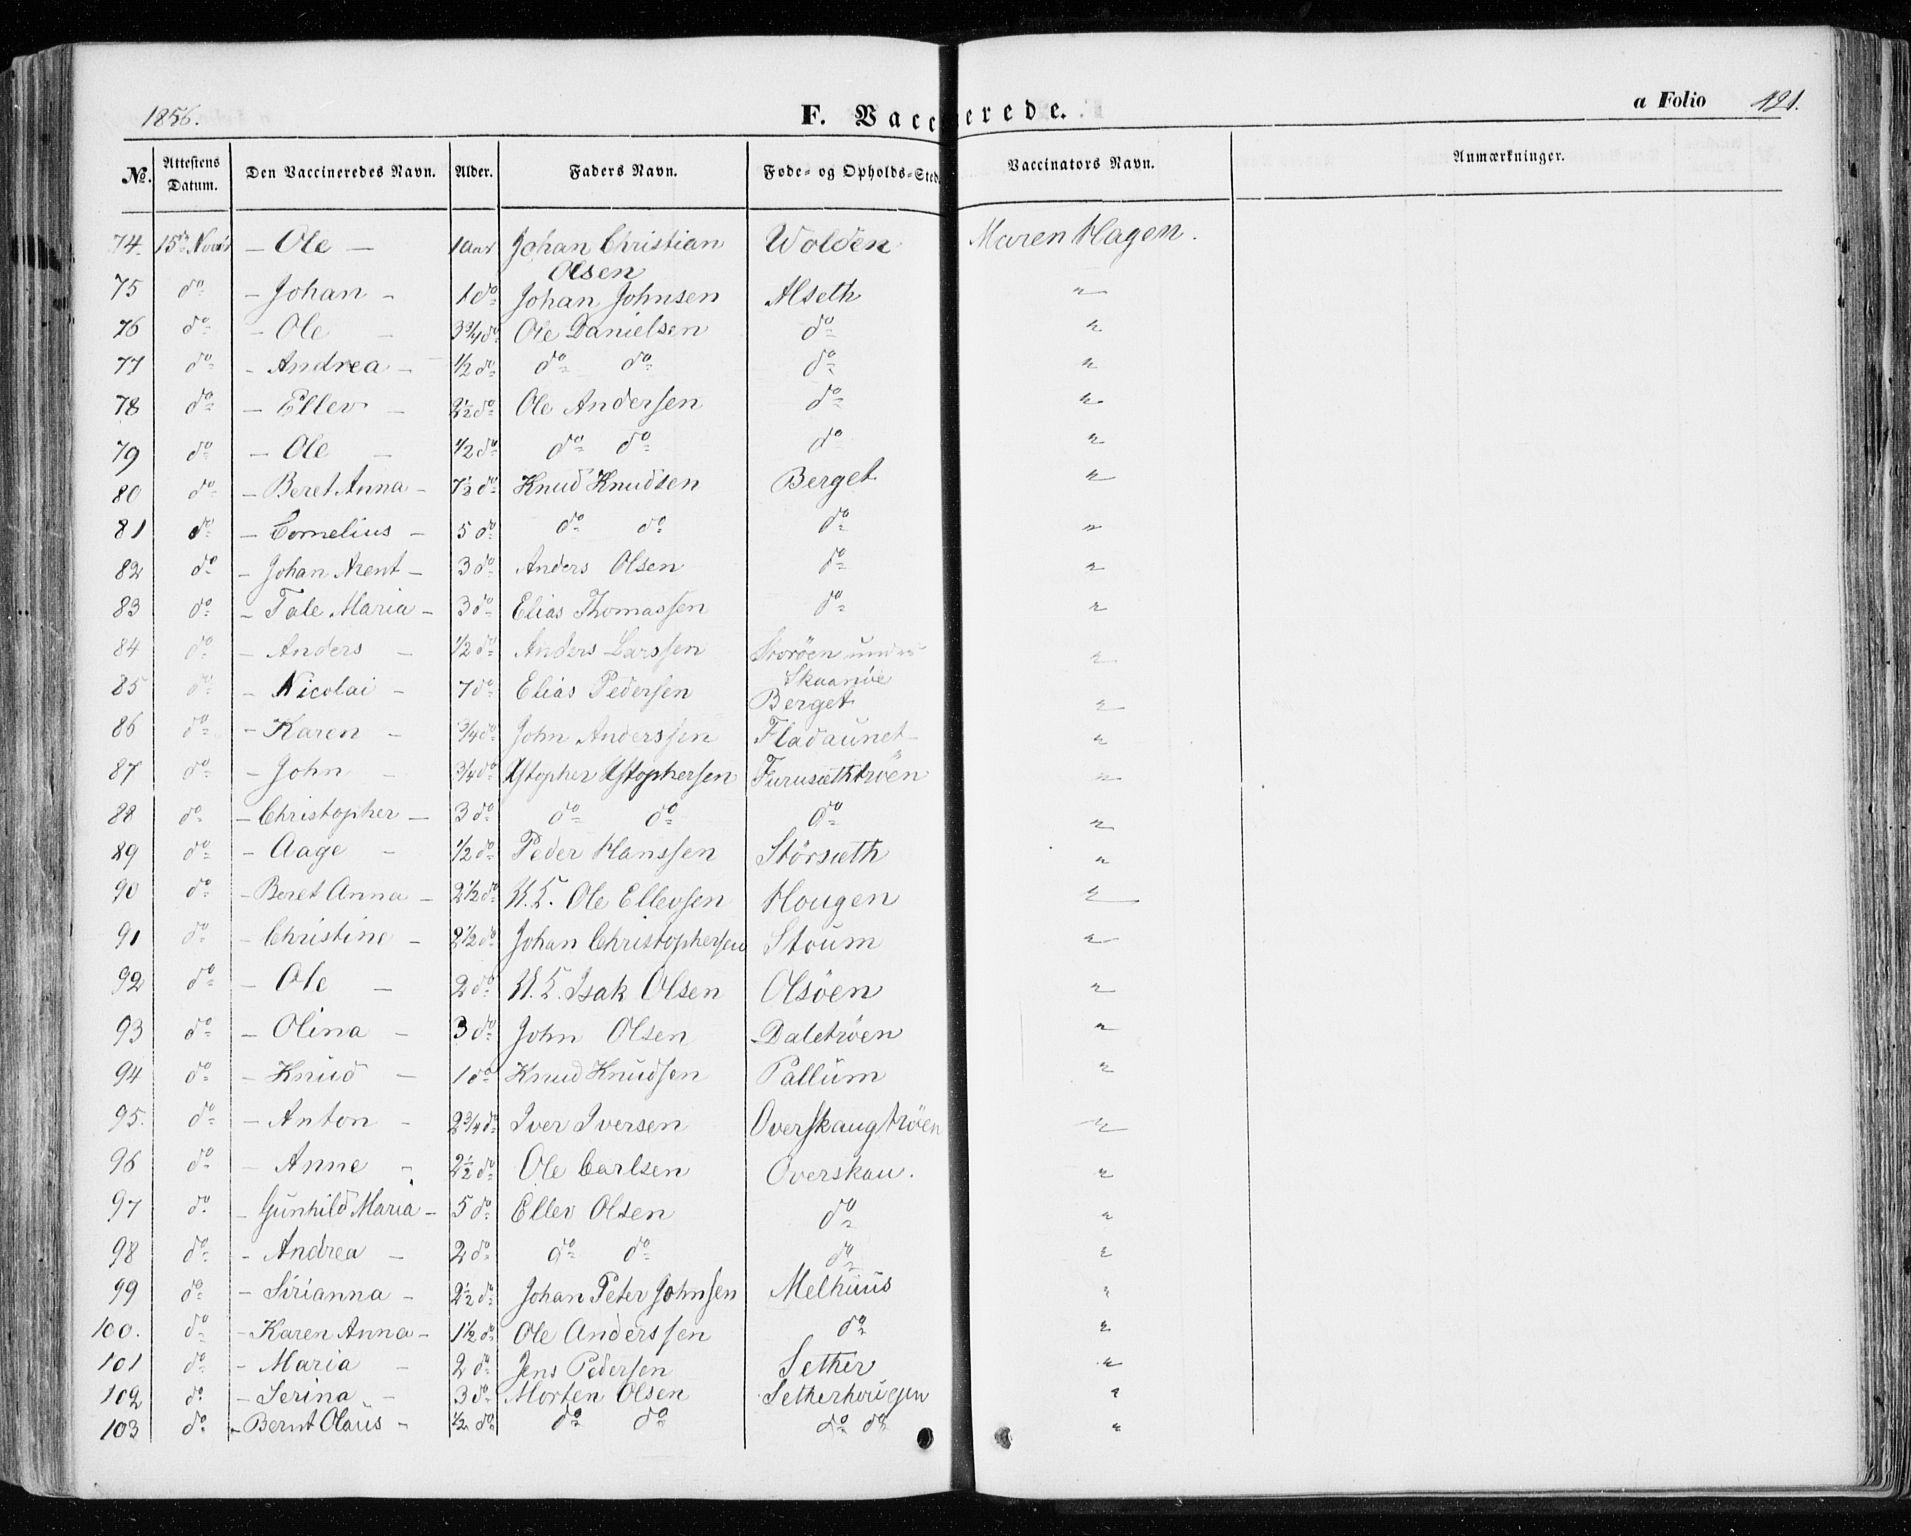 1856.
F. Vaccinerede.
a Folio 421.
No. Attestens Datum. Den Vaccineredes Navn. Alder. Faders Navn. Føde- og Opholds-Sted. Vaccinators Navn. Anmærkninger.
74. 15de Novbr – Ole – 1 Aar Johan Christian Olsen Wolden Maren Hagen.
75 do – Johan – 1 do Johan Johnsen Alseth "
76 do – Ole – 3 3/4 do Ole Danielsen do "
77 do – Andrea – 1/2 do do do do "
78 do – Ellev – 2 1/2 do Ole Andersen do "
79 do – Ole – 1/2 do do do do "
80 do – Beret Anna – 7 1/2 do Knud Knudsen Berget "
81 do – Cornelius – 5 do do do do "
82 do – Johan Arent – 3 do Anders Olsen do "
83 do – Tale Maria – 3 do Elias Thomassen do "
84 do – Anders – 1/2 do Anders Larssen Storöen under "
85 do – Nicolai – 7 do Elias Pedersen Berget "
86 do – Karen – 3/4 do John Anderssen Fladaunet "
87 do – John – 3/4 do Xstopher Xstophersen Furusæthtröen "
88 do – Christopher – 3 do do do do "
89 do – Aage – 1/2 do Peder Hanssen Störsæth "
90 do – Beret Anna – 2 1/2 do Ole Ellevsen Hougen "
91 do – Christine – 2 1/2 do Johan Christophersen Stoum "
92 do – Ole – 2 do Isak Olsen Olsöen "
93 do – Olina – 3 do John Olsen Daletröen "
94 do – Knud – 1 do Knud Knudsen Pallum "
95. do – Anton – 2 3/4 do Iver Iversen Overskaugtröen "
96 do – Anne – 2 1/2 do Ole Carlsen Overskau. "
97 do – Gunhild Maria – 5 do Ellev Olsen do "
98 do – Andrea – 2 do do do do "
99 do – Sirianna – 2 1/2 do Johan Peter Johnsen Melhuus "
100. do – Karen Anna – 1 1/2 do Ole Anderssen do "
101 do – Maria – 2 do Jens Pedersen Sether "
102 do – Serina – 3 do Morten Olsen Setherhougen "
103 do – Bernt Olaus – 1/2 do do do do do "